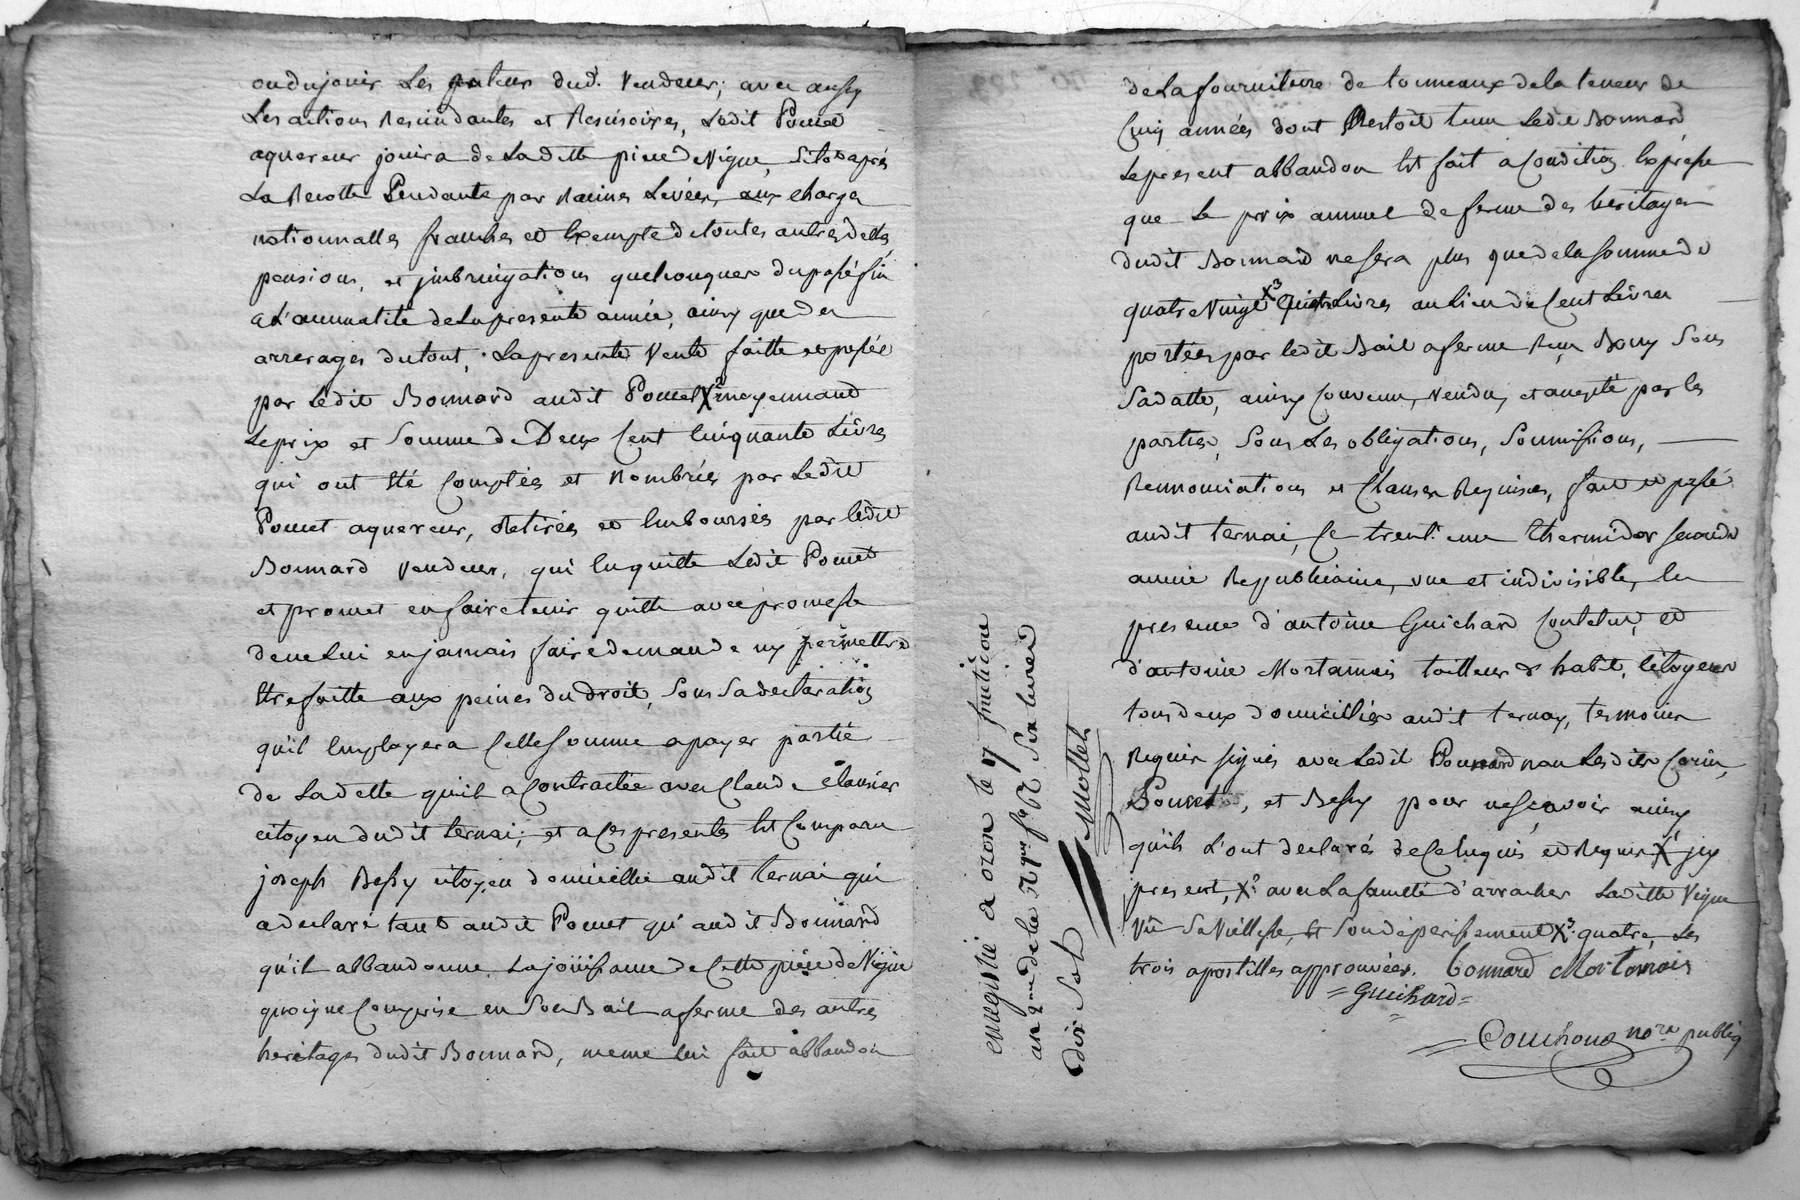 ou du jouir Les auteurs dud. Vendeur; avec aussy
Les actions Rescindantes et Rescisoires, Ledit Pomet
aquereur jouira de Ladette piece de Vigne, Sitot après
La Recolte Pendante par Racines Levées, aux charges
nationnalles franches et Exempte de toutes autres dettes
pensions, et jmbringations quelconques du passé fin
a L'annuatité de La presente année, ainsy que des
arrerages du tout, La presente Vente faitte et passée
par Ledit Bonnard audit Pomet X moyennant
Le prix et Somme de Deux Cent Cinquante Livres
qui ont Eté Comptées et Nombrées par Ledit
Pomet aquereur, Retirées et Emboursées par Ledit
Bonnard Vendeur, qui En quitte Ledit Pomet
et promet en faire tenir quitte avec promesse
de ne Lui en jamais faire demande ny permettre
Etre faitte aux peines du droit, Sous Sa declaration
qu'il Employera Cette Somme a payer partie
de La dette qu'il a Contractée avec Claude
citoyen dudit ternai; et a Ces presentes Est Comparu
joseph Bessy citoyen domicillié audit ternai qui
a declaré tant audit Pomet qu'audit Bonnard
qu'il abbandonne La jouissance de Cette piece de Vigne
quoique Comprise en Son Bail a ferme des autres
heritages dudit Bonnard, meme Lui fait abbandon
de La fourniture de tonneaux de la teneur de
Cinq années dont Restoit tenu Ledit Bonnard,
Le present abbandon Est fait a Condition Expresse
que Le prix annuel de ferme des heritages
dudit Bonnard ne sera plus que de la Somme de
quatre Vingt X3 Livres au Lieu de Cent Livres
portées par Ledit Bail a ferme Sous
Sa datte, ainsy Convenu, vendu, et accepté par les
parties, Sous Les obligations, Soumissions,
Rennonciations et Clauses Requises, fait et passé
audit ternai, Ce trentieme thermidor seconde
année Republicaine, une et indivisible, En
presence d'antoine Guichard et
d'antoine Mortamais tailleur d'habit, Citoyens
tous deux domicilliés audit ternay, temoins
Requis signés avec Ledit Bonnard non Lesdits
Pomet, et Bessy pour ne sçavoir ainsy
qu'ils L'ont declarés de Ce Enquis et Requis X1 jcy
present, X2 avec La faculté d'arracher Laditte Vigne
Vû Sa Viéllesse, Et Son déperissement X3 quatre, Les
trois apostilles approuvées. Bonnard Mortamais
= Guichard =
= Couchoud no.re public
enregistré a oron le 17 fructidor
an 2
dix Sols Mottet